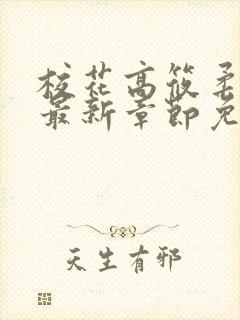 校花高筱柔
最新章節免
天生有邪